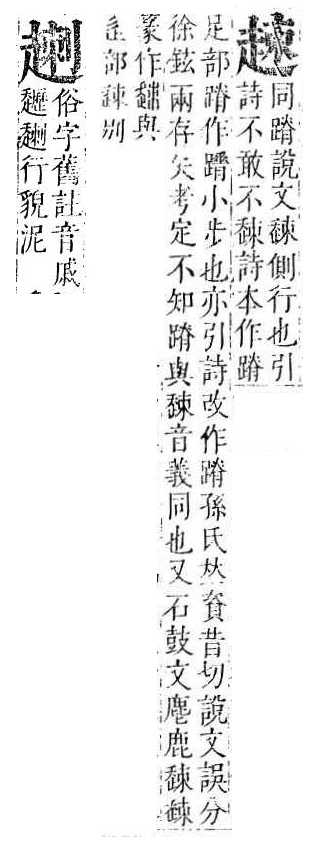 趚
同蹐說文趚側行也引
詩不敢不趚詩本作蹐
足部蹐作蹐小步也亦引詩改作蹐孫氏𠀤資昔切說文誤分
徐鉉兩存失考定不知蹐與趚音義同也又石鼓文麀鹿趚趚
篆作與
辵部别
俗字舊註音戚
行貌泥